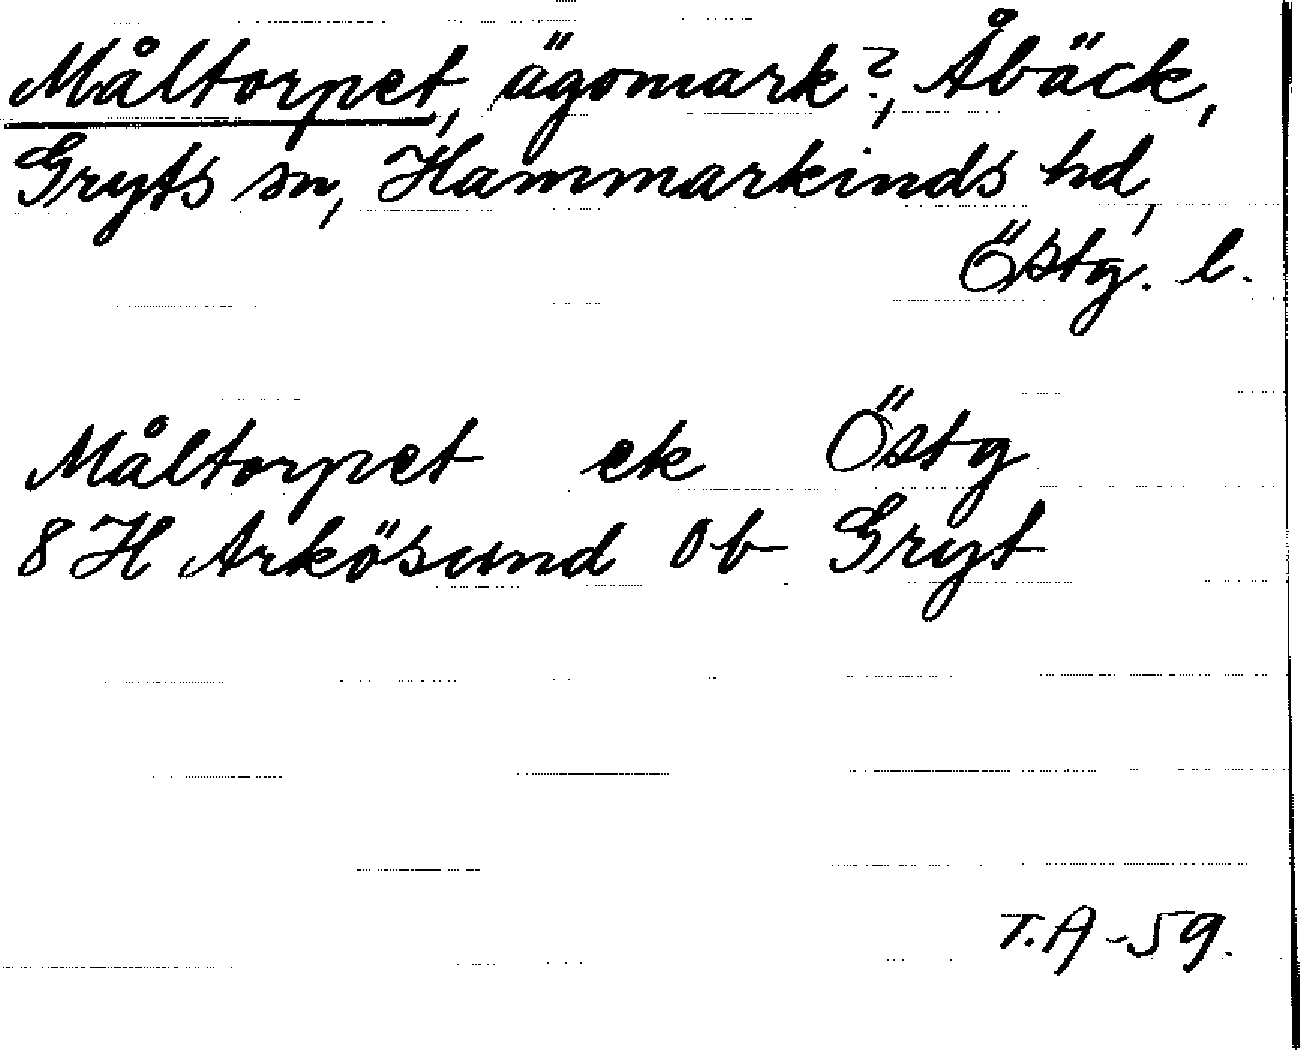 Måltorpet, ägomark?, Åbäck,
Gryts sn, Hammarkinds hd,
Östg. l.
Måltorpet ek Östg
8 H Arkösund 0 b Gryt
T.A -59.